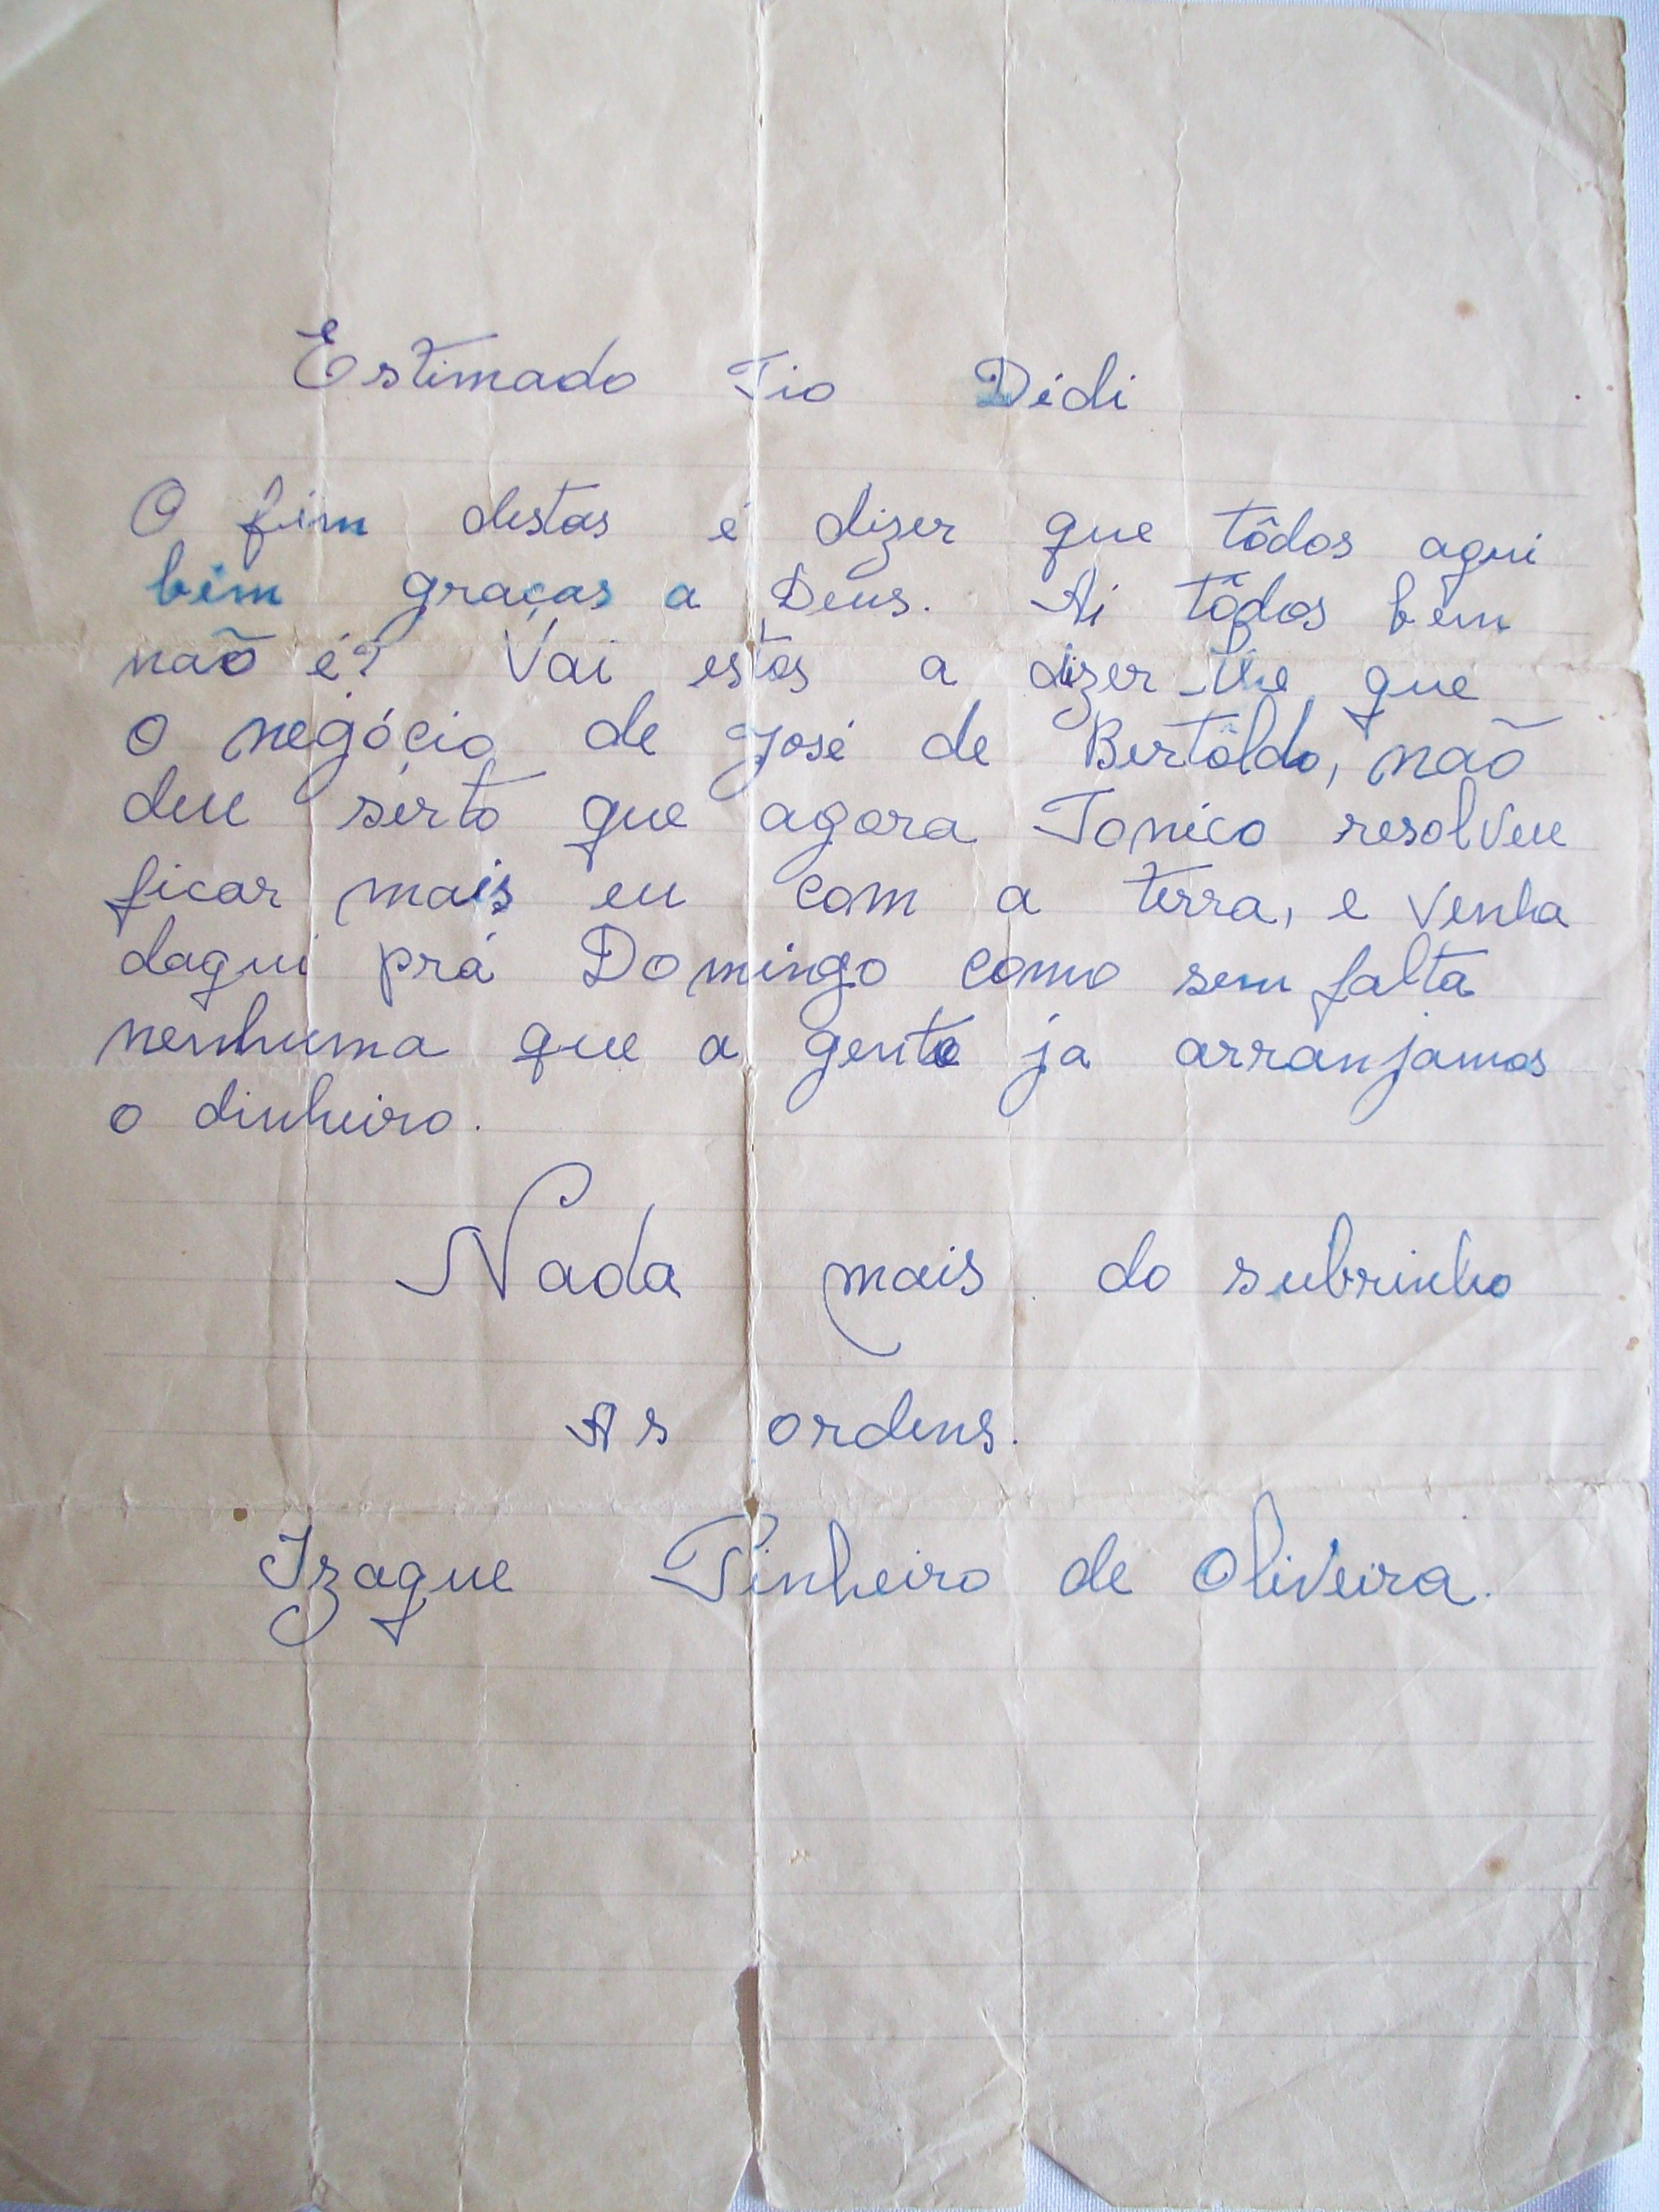 Estimado Tio Didi
O fim destas é dizer que tôdos aqui
bem graças a Deus. Ai tôdos bem
não é? Vai estas a dizer-lhe que
o negócio de José de Bertôldo, não
deu serto que agora Tonico resolveu
ficar mais eu com a terra, e venha
daqui prá Domingo como sem falta
nenhuma que a gente ja arranjamos
o dinheiro.
Nada mais do subrinho
As ordens.
Izaque Pinheiro de Oliveira.